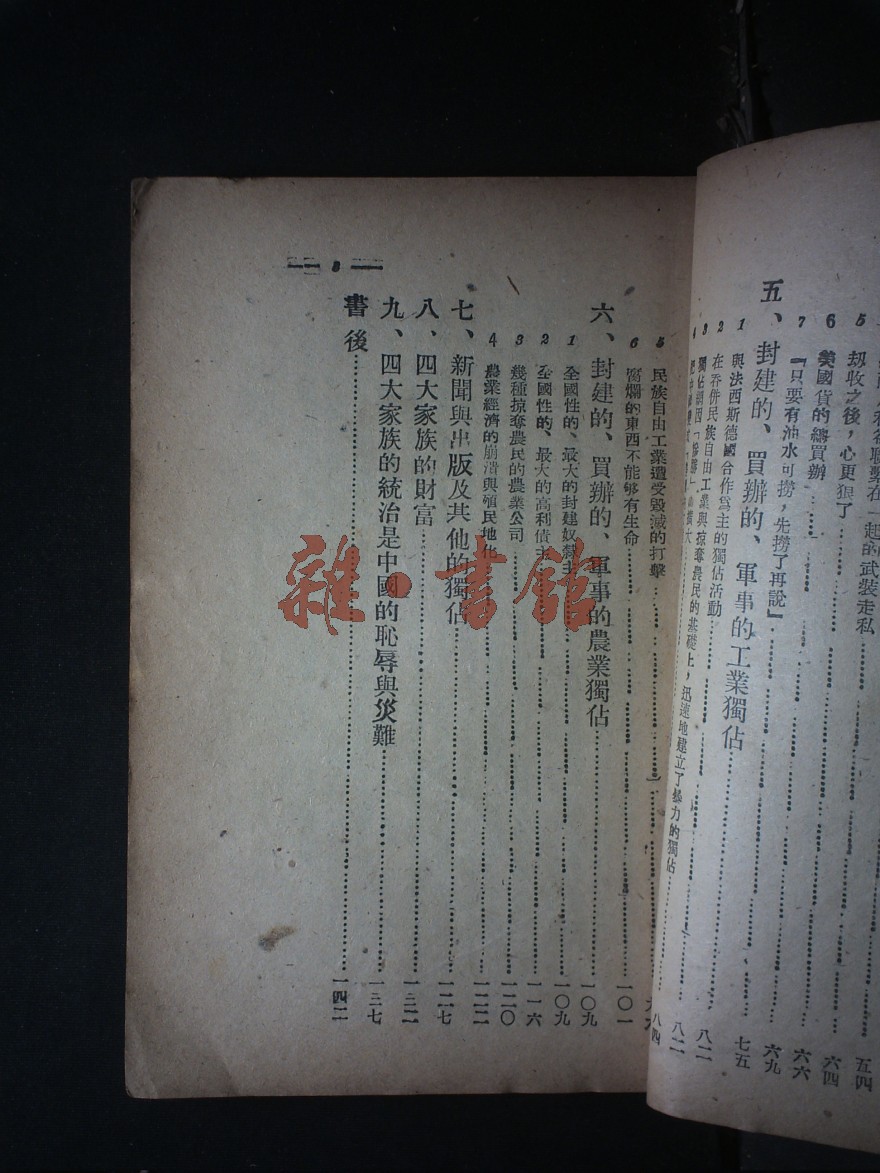 起的武裝走私
5 刼收之後，心更狠了 五四
6 美國貨的總買辦 六四
7 『只要有油水可撈，先撈了再說』 六六
五、封建的、買辦的、軍事的工業獨佔 六九
1 與法西斯德國合作爲主的獨佔活動 七五
2 在吞併民族自由工業與掠奪農民的基礎上，迅速地建立了暴力的獨佔 八二
3 獨佔 八二
4 八四
5 民族自由工業遭受毀滅的打擊
6 腐爛的東西不能够有生命 一〇一
六、封建的、買辦的、軍事的農業獨佔 一〇九
1 全國性的、最大的封建奴隸主 一〇九
2 全國性的、最大的高利債主 一一六
3 幾種掠奪農民的農業公司 一二〇
4 農業經濟的崩潰與殖民地化 一二二
七、新聞與出版及其他的獨佔 一二七
八、四大家族的財富 一三二
九、四大家族的統治是中國的恥辱與災難 一三七
書後 一四二
3
雜·書館